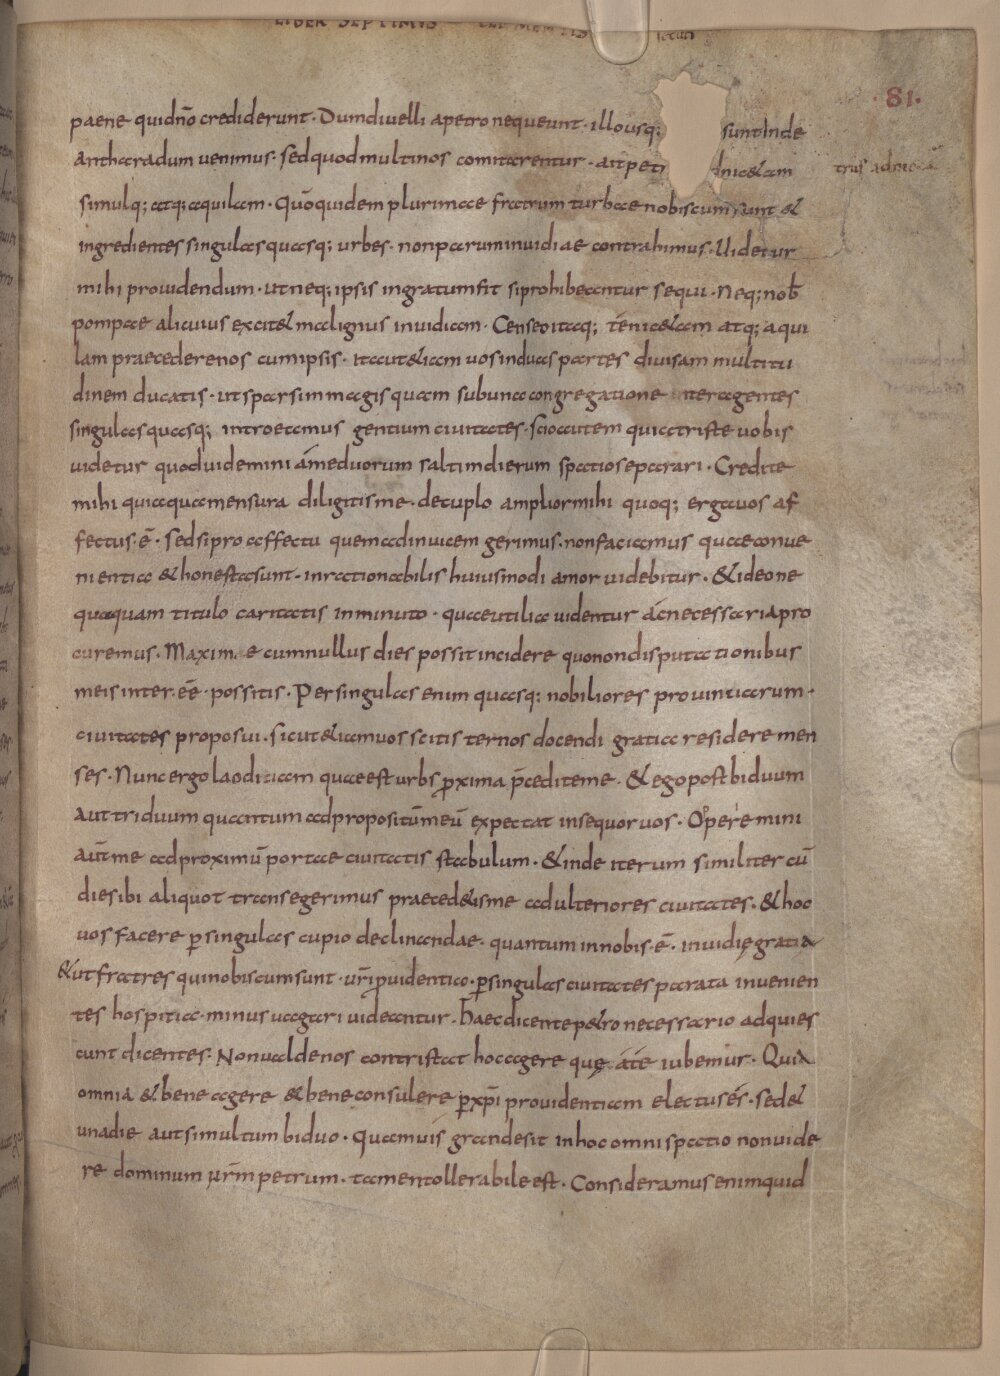 LIBER SEPTIMUS CLEMENTIS
·81·
paene quid nō crediderunt · Dum divelli a petro nequeunt · illo usq; sunt Inde
antharadum venimus · sed quod multi nos comitarentur · ait petrus ad nicetam
simulq; atq; aquilam · Quō quidem plurimae fratrum turbae nobiscum sunt &
ingredientes singulas quasq; urbes · non parum invidiae contrahimus · Videtur
mihi providendum · ut neq; ipsis ingratum fit si prohibeantur sequi · Neq; nob̄
pompae alicuius excit& malignus invidiam · Censeo itaq; te nic&am atq; aqui
lam praecedere nos cum ipsis · ita ut &iam vos in duas partes divisam multitu
dinem ducatis · ut sparsim magis quam sub una congregatione inter agentes
singulas quasq; introeamus gentium civitates · scio autem quia triste vobis
videtur quod videmini a me duorum saltim dierum spatio separari · Credite
mihi quia qua mensura diligitis me · decuplo amplior mihi quoq; erga vos af
fectus · ē · sed si pro affectu quem ad invicem gerimus · non faciamus quae conve
nientia & honesta sunt · inrationabilis huiusmodi amor videbitur · & ideo ne
quaquam titulo caritatis inminuto · quae utilia videntur ac necessaria pro
curemus · Maxime cum nullus dies possit incidere quo non disputationibus
meis inter·ēē· possitis · Per singulas enim quasq; nobiliores provintiarum ·
civitates proposui · sicut &iam vos scitis ternos docendi gratia residere men
ses · Nunc ergo laodiciam quae est urbs ꝓxima p̄cedite me · & ego post biduum
aut triduum quantum ad propositū meū expectat insequor vos · Opperemini
aut̄ me ad proximū portae civitatis stabulum · & inde iterum similiter cū
dies ibi aliquot transegerimus praeced&is me ad ulteriores civitates · & hoc
vos facere ꝑ singulas cupio declinandae · quantum in nobis · ē · invidię gratia
& ut fratres qui nobiscum sunt · vr̄i ꝓvidentia · ꝑ singulas civitates parata invenien
tes hospitia · minus vagari videantur · haec dicente p&ro necessario adquies
cunt dicentes · Non valde nos contristat hoc agere quę a te iubemur · Quia
omnia & bene agere & bene consulere ꝑ xp̄i providentiam electus es · sed &
una die aut si multum biduo · Quamvis grande sit in hoc omni spatio non vide
re dominum nr̄m petrum · tamen tollerabile est · Consideramus enim quid